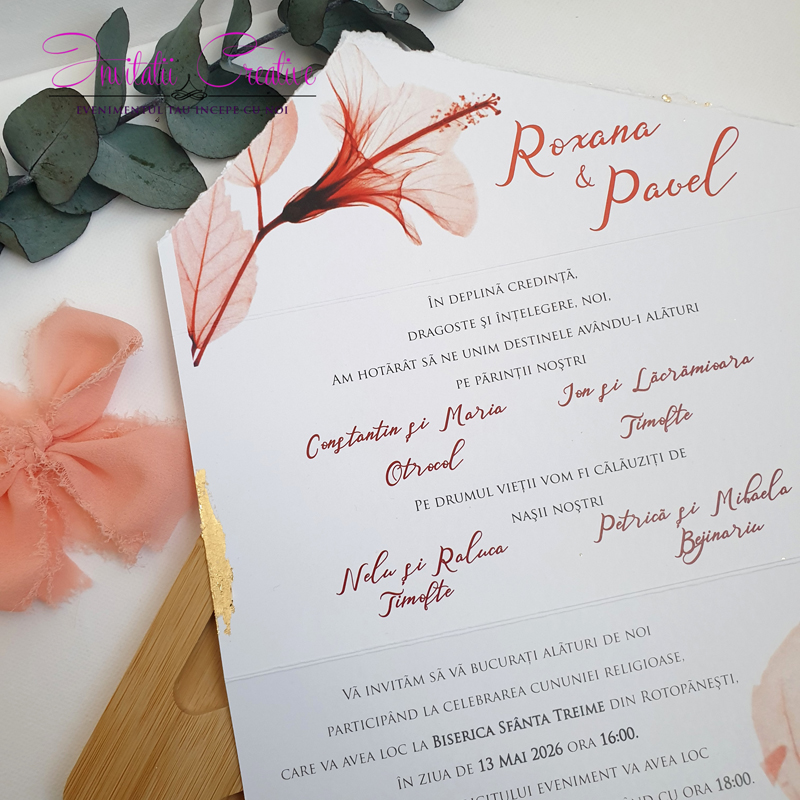 Invitatii Creative
EVENIMENTUL TAU INCEPE CU NOI
Roxana
& Pavel
ÎN DEPLINĂ CREDINȚĂ,
DRAGOSTE ȘI ÎNȚELEGERE, NOI,
AM HOTĂRÂT SĂ NE UNIM DESTINELE AVÂNDU-I ALĂTURI
PE PĂRINȚII NOȘTRI
Constantin și Maria
Otrocol
Ion și Lăcrămioara
Timofte
PE DRUMUL VIEȚII VOM FI CĂLĂUZIȚI DE
NAȘII NOȘTRI
Nelu și Raluca
Timofte
Petrică și Mihaela
Bejinariu
VĂ INVITĂM SĂ VĂ BUCURAȚI ALĂTURI DE NOI
PARTICIPÂND LA CELEBRAREA CUNUNIEI RELIGIOASE,
CARE VA AVEA LOC LA BISERICA SFÂNTA TREIME DIN ROTOPĂNEȘTI,
ÎN ZIUA DE 13 MAI 2026 ORA 16:00.
EVENIMENT VA AVEA LOC
CU ORA 18:00.